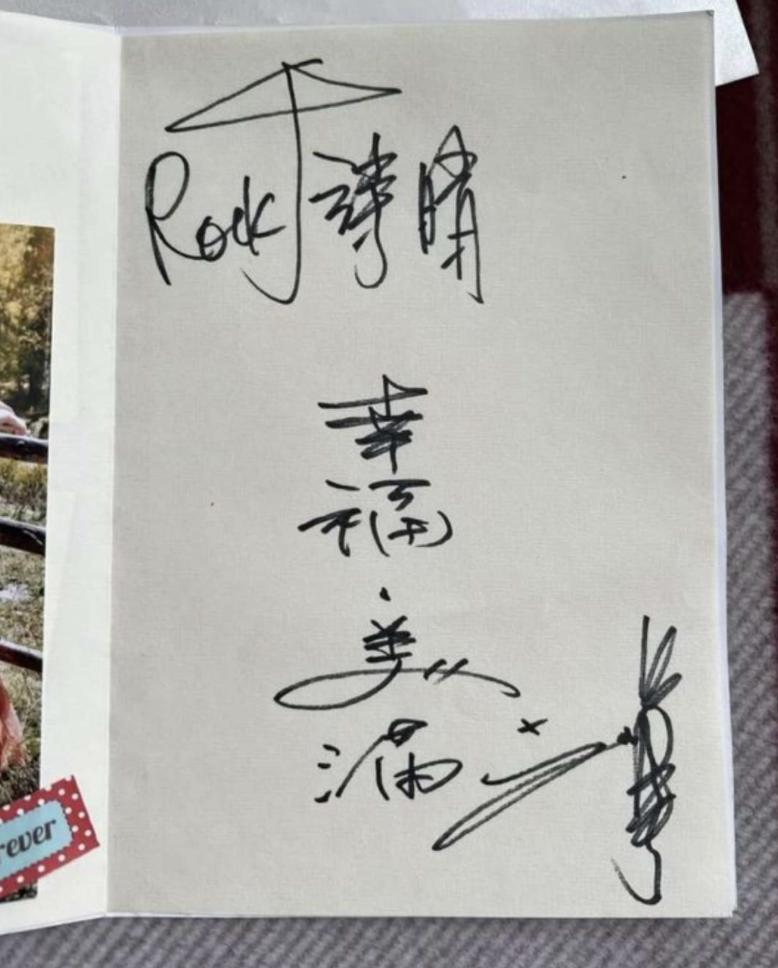 Rock 詩晴
幸
福
美
滿
rever